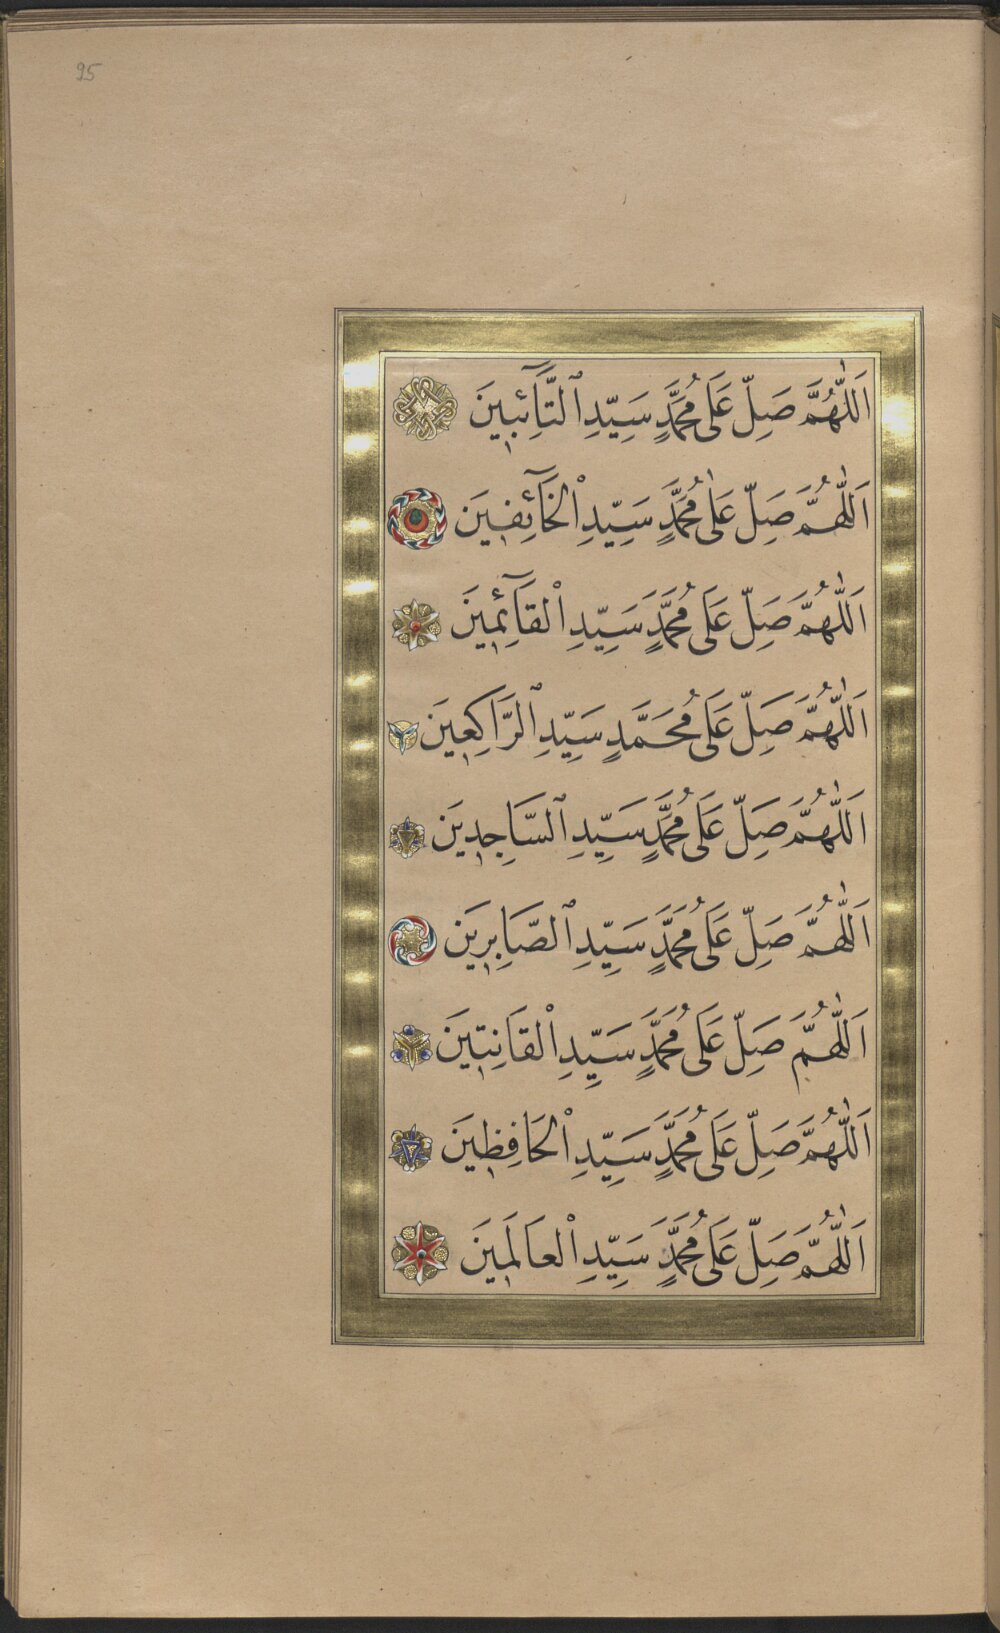 95
اَللّٰهُمَّ صَلِّ عَلَى مُحَمَّدٍ سَيِّدِ ٱلتَّآئِبِينَ
اَللّٰهُمَّ صَلِّ عَلٰى مُحَمَّدٍ سَيِّدِ ٱلْخَآئِفِينَ
اَللّٰهُمَّ صَلِّ عَلَى مُحَمَّدٍ سَيِّدِ ٱلْقَآئِمِينَ
اَللّٰهُمَّ صَلِّ عَلَى مُحَمَّدٍ سَيِّدِ ٱلرَّاكِعِينَ
اَللّٰهُمَّ صَلِّ عَلَى مُحَمَّدٍ سَيِّدِ ٱلسَّاجِدِينَ
اَللّٰهُمَّ صَلِّ عَلَى مُحَمَّدٍ سَيِّدِ ٱلصَّابِرِينَ
اَللّٰهُمَّ صَلِّ عَلَى مُحَمَّدٍ سَيِّدِ ٱلْقَانِتِينَ
اَللّٰهُمَّ صَلِّ عَلَى مُحَمَّدٍ سَيِّدِ ٱلْحَافِظِينَ
اَللّٰهُمَّ صَلِّ عَلَى مُحَمَّدٍ سَيِّدِ ٱلْعَالَمِينَ